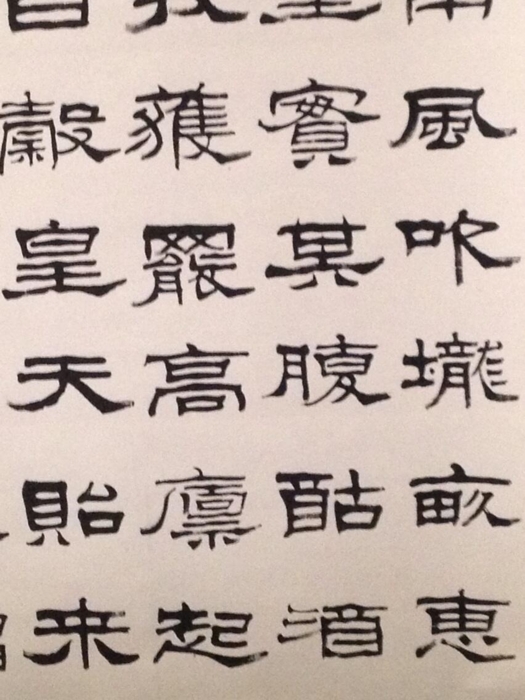 南風吹壠畝惠
實其腹酤酒
我穫罷高廩起
穀皇天貽来